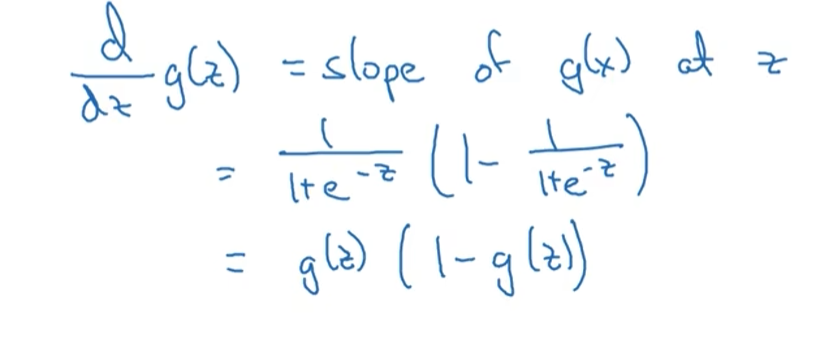 d/dz g(z) = slope of g(x) at z
= 1/(1+e^-z) (1 - 1/(1+e^-z))
= g(z) (1 - g(z))